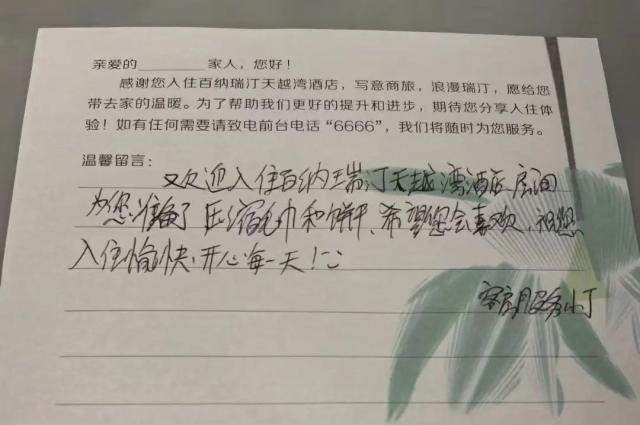 亲爱的________家人，您好！
感谢您入住百纳瑞汀天越湾酒店，写意商旅，浪漫瑞汀，愿给您
带去家的温暖。为了帮助我们更好的提升和进步，期待您分享入住体
验！如有任何需要请致电前台电话“6666”，我们将随时为您服务。
温馨留言：
欢迎入住百纳瑞汀天越湾酒店房间
为您准备了压缩毛巾和饼干、希望您会喜欢，祝您
入住愉快，开心每一天！
客房服务小丁